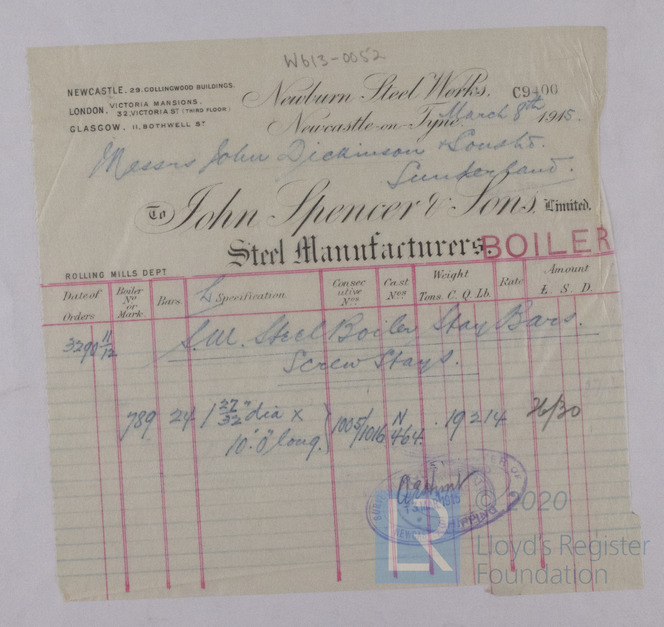 W613-0052
NEWCASTLE. 29. COLLINGWOOD BUILDINGS.
LONDON. VICTORIA MANSIONS, 32, VICTORIA ST (THIRD FLOOR)
GLASGOW. 11. BOTHWELL ST
Newburn Steel Works. C9400
Newcastle-on-Tyne, March 8th 1915.
Messrs John Dickinson & Sons Ld.
Sunderland.
To John Spencer & Sons, Limited.
Steel Manufacturers. BOILER
ROLLING MILLS DEPT
Date of Orders Boiler No or Mark. Bars. Specification Consecutive Nos. Cast Nos. Weight Tons. C. Q. Lb. Rate Amount £. S. D.
3290 11/12 S.M. Steel Boiler Stay Bars.
Screw Stays.
789 24 1 27/32" dia x 1005/1016 N 464. . 19 2 14
10'.0" long.
© 2020
LR
Lloyd's Register
Foundation